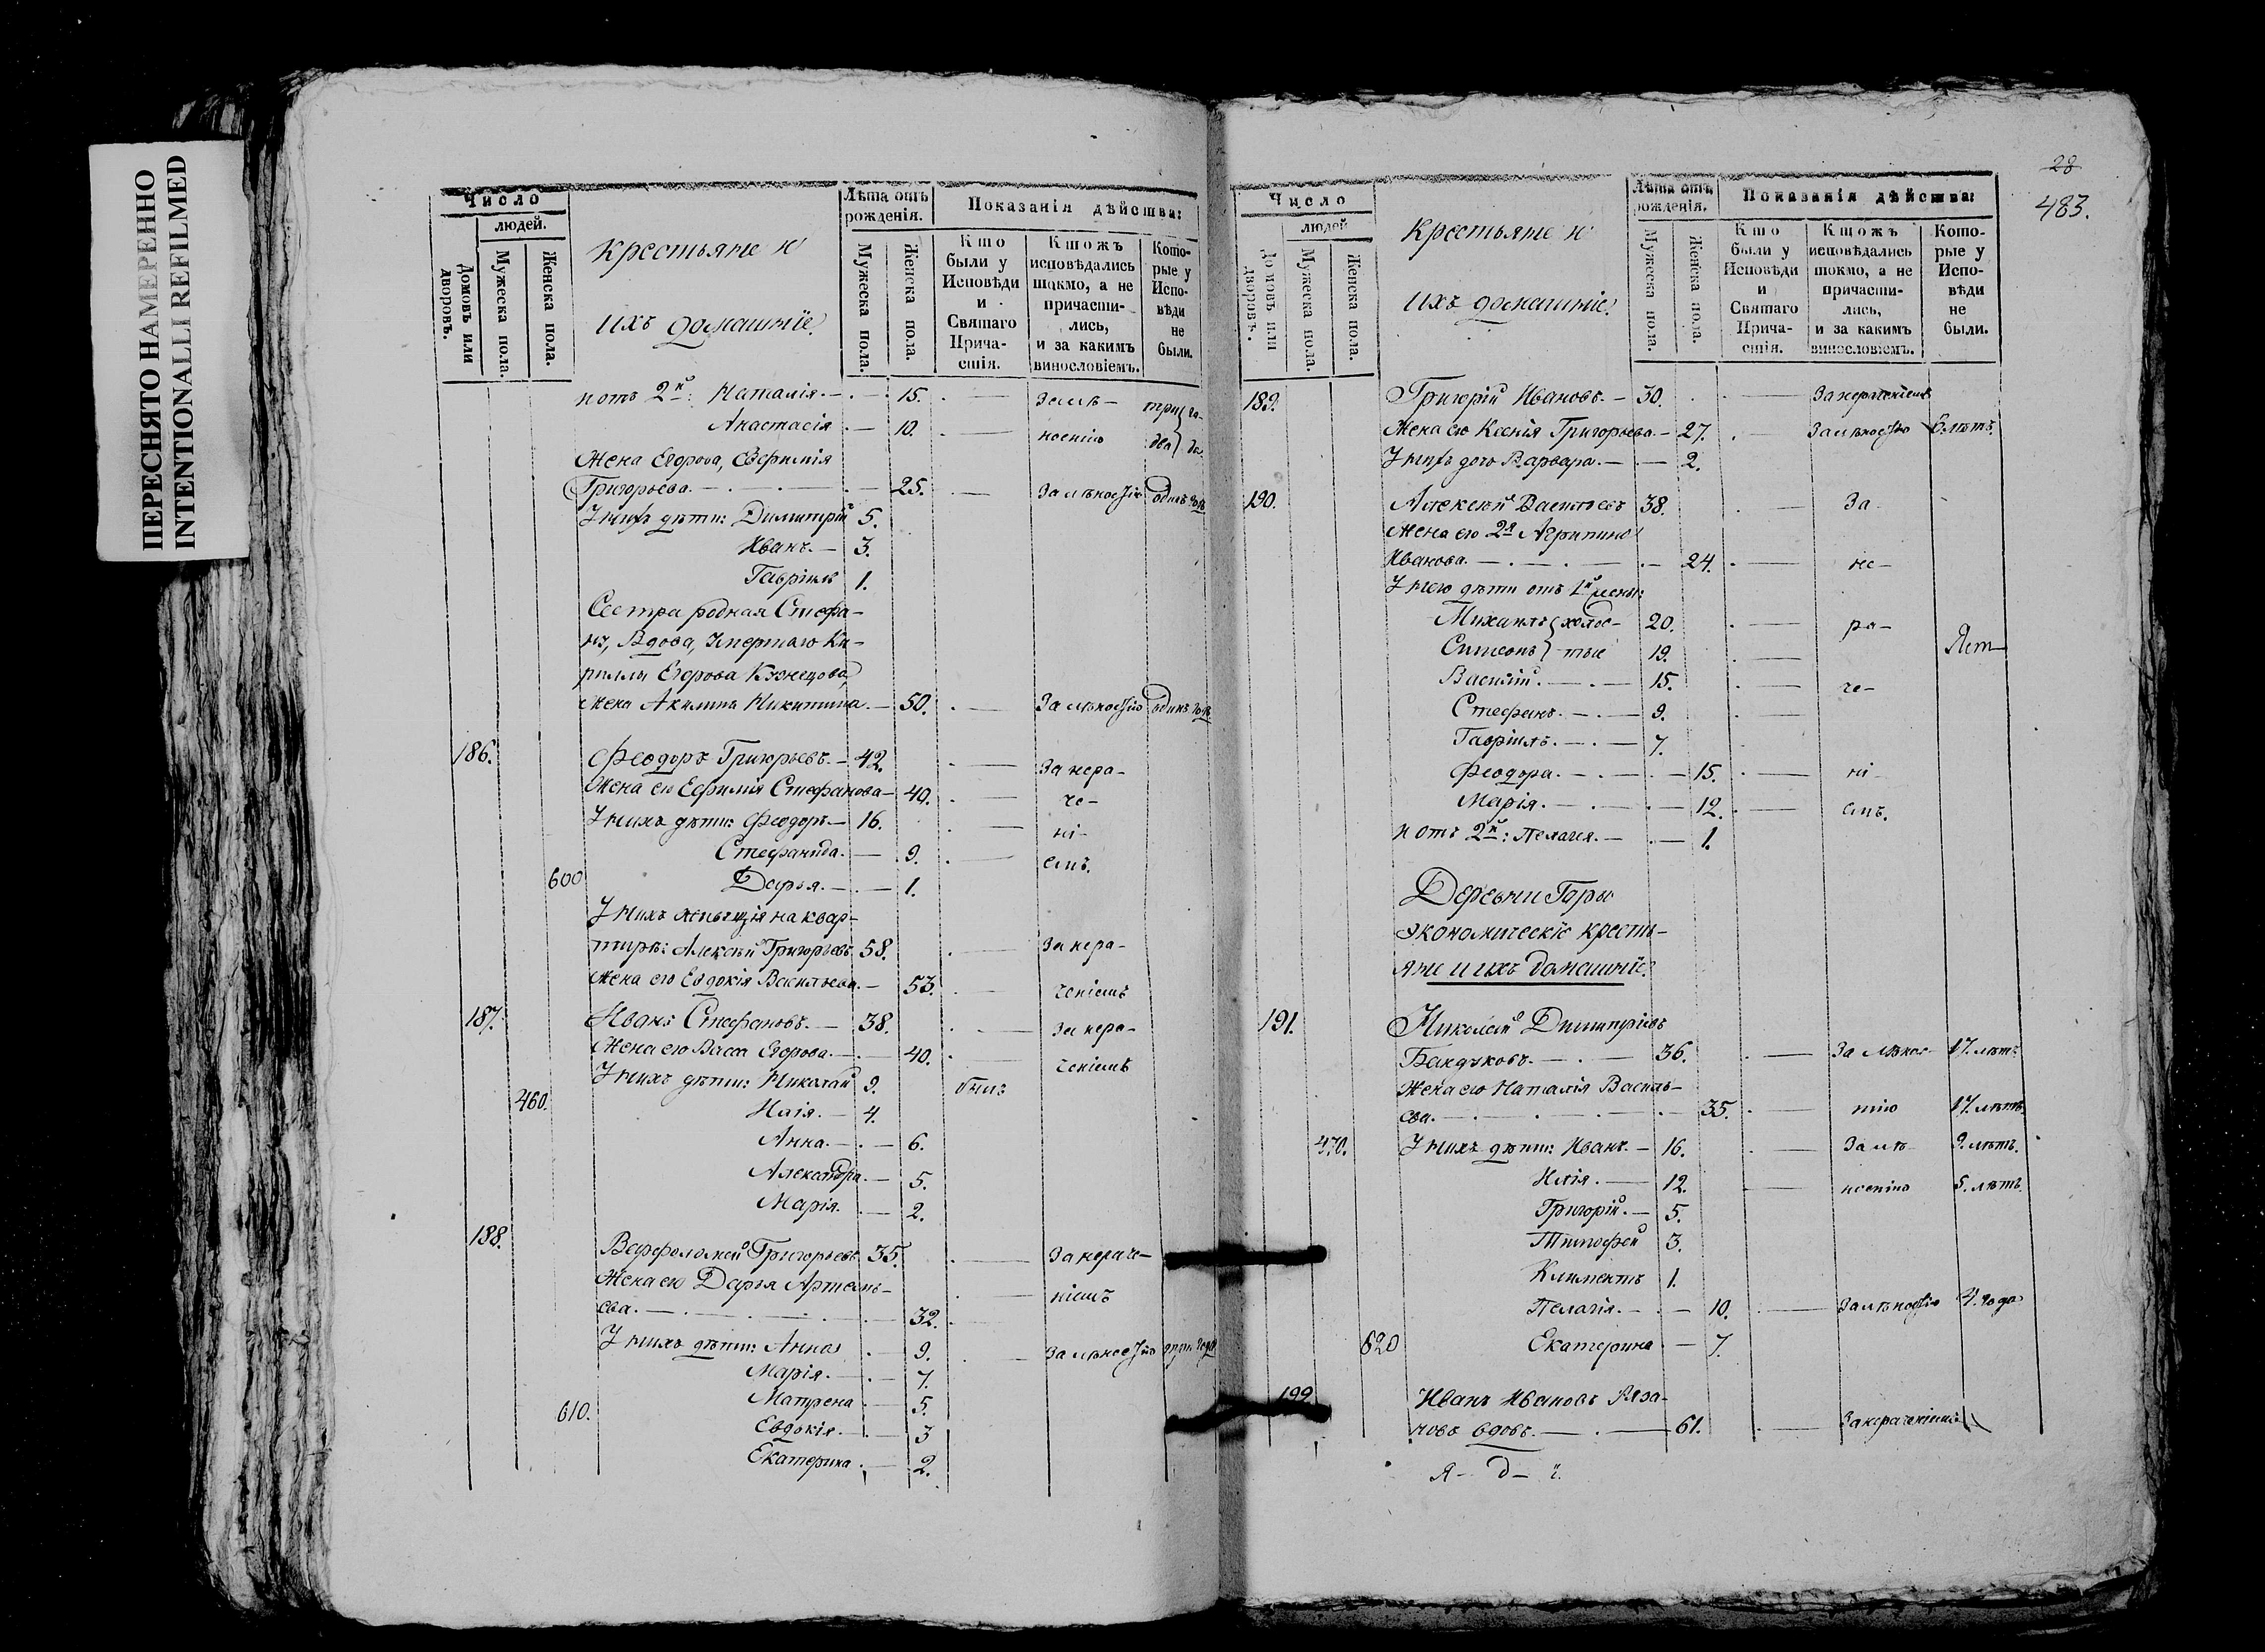 ПЕРЕСНЯТО НАМЕРЕННО
INTENTIONALLI REFILMED
Число
людей.
Домовъ или дворовъ.
Мужеска пола.
Женска пола.
Крестьяне и
ихъ домашніе
Лѣта отъ рожденія.
Мужеска пола.
Женска пола.
Показанія дѣйства:
Кто были у Исповѣди и Святаго Причастія.
Ктожъ исповѣдались токмо, а не причастились, и за какимъ винословіемъ.
Которые у Исповѣди не были.
и отъ 2й: Наталія. 15. за лѣ- три
Анастасія 10. ностію два
Жена Егорова, Евфимія
Григорьева. 25. За лѣностію одинъ годъ
У нихъ дѣти: Димитрій 5.
Иванъ. 3.
Гавріилъ 1.
Сестра родная Стефа-
на, Вдова, Умершаго Ки-
риллы Егорова Кузнецова,
Жена Акилина Никитина. 50. За лѣностію одинъ годъ
186. Феодоръ Григорьевъ. 42. За нера-
Жена его Ефимія Стефанова 40. че-
У нихъ дѣти: Феодоръ 16. ні-
Стефанида. 9. емъ.
600 Дарья. 1.
У нихъ живущія на квар-
тирѣ: Алексѣй Григорьевъ 58. За нера-
Жена его Евдокія Васильева. 53. ченіемъ
187. Иванъ Стефановъ. 38. За нера-
Жена его Васса Егорова. 40. ченіемъ
У нихъ дѣти: Николай 9. былъ
460. Илія. 4.
Анна. 6.
Александра. 5.
Марія. 2.
188. Варфоломей Григорьевъ 35. За нераче-
Жена его Дарья Артемь-
ева. 32. ніемъ
У нихъ дѣти: Анна 9. За лѣностію три года
Марія. 7.
610. Матрена 5.
Евдокія. 3
Екатерина 2.
28
483.
Число
людей
Домовъ или дворовъ.
Мужеска пола.
Женска пола.
Крестьяне и
ихъ домашніе
Лѣта отъ рожденія.
Мужеска пола.
Женска пола.
Показанія дѣйства:
Кто были у Исповѣди и Святаго Причастія.
Ктожъ исповѣдались токмо, а не причастились, и за какимъ винословіемъ.
Которые у Исповѣди не были.
189. Григорій Ивановъ. 30. За нераченіемъ
Жена его Ксенія Григорьева. 27. За лѣностію 6. лѣтъ.
У нихъ дочь Варвара. 2.
190. Алексѣй Васильевъ 38. За
Жена его 2я Агрипина
Иванова. 24. не-
У него дѣти отъ 1й жены:
Михаилъ холос- 20. ра-
Симеонъ тые 19.
Василій. 15. че-
Стефанъ. 9.
Гавріилъ. 7.
Феодора. 15. ні-
Марія. 12. емъ.
и отъ 2й: Пелагея. 1.
Деревни Горы
экономическіе кресть-
яне и ихъ домашніе
191. Николай Димитріевъ
36. За лѣнос- 17. лѣтъ
Жена его Наталія Василь-
ева. 35. тію 17. лѣтъ
470. У нихъ дѣти: Иванъ. 16. За лѣ- 9. лѣтъ.
Илія. 12. ностію 5. лѣтъ.
Григорій. 5.
Тимофей 3.
Климентъ 1.
Пелагія. 10. За лѣностію 4. года
620 Екатерина 7.
192 Иванъ Ивановъ Ряза-
новъ вдовъ. 61. За нераченіемъ